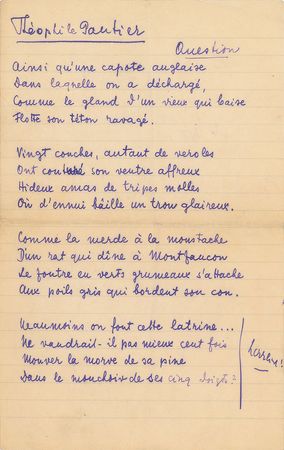 Théophile Gautier
Question
Ainsi qu'une capote anglaise
Dans laquelle on a déchargé,
Comme le gland d'un vieux qui baise
Flotte son téton ravagé.
Vingt couches, autant de veroles
Ont son ventre affreux
Hideux amas de tripes molles
Où d'ennui bâille un trou glaireux.
Comme la merde à la moustache
D'un rat qui dîne à Montfaucon
Le foutre en verts grumeaux s'attache
Aux poils gris qui bordent son con.
Neaumoins on fout cette latrine...
Ne vaudrait-il pas mieux cent fois
Mouver la morve de sa pine
Dans le mouchoir de ses cinq doigts?